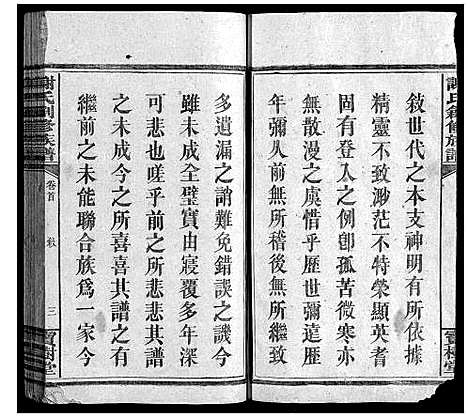 敍世代之本支神明有所依據
精靈不致渺茫不特榮顯英耆
固有登入之例卽孤苦微寒亦
無散漫之虞惜乎歷世彌遠歷
年彌久前無所稽後無所繼致
多遺漏之誚難免錯誤之譏今
雖未成全璧實由寢覆多年深
可悲也嗟乎前之所悲悲其譜
之未成今之所喜喜其譜之有
繼前之未能聯合族爲一家今
謝氏創修族譜
卷首
三
寶樹堂